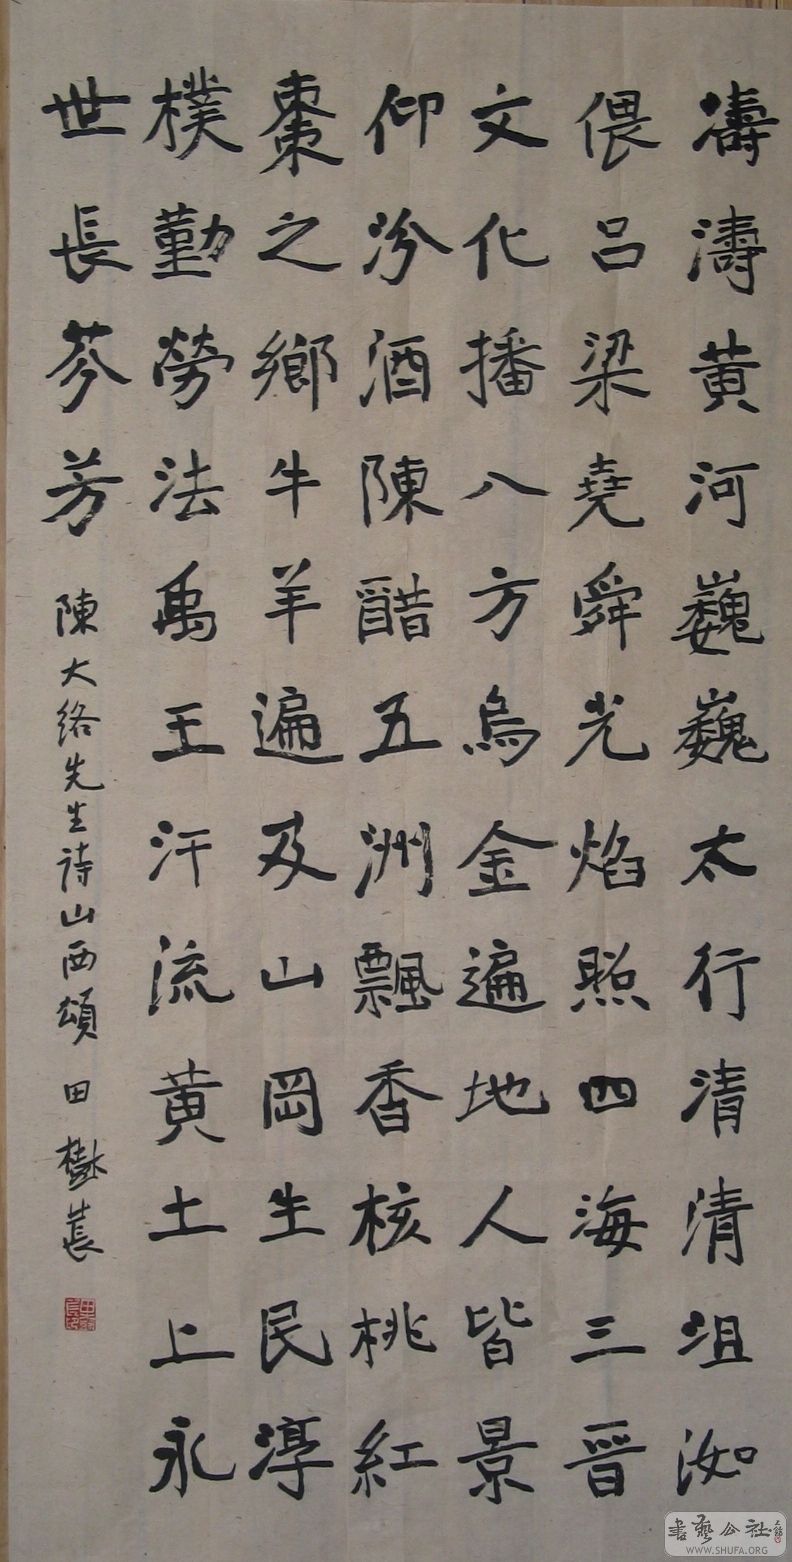 濤濤黄河巍巍太行清清沮洳
偎吕梁堯舜光焰照四海三晉
文化播八方烏金遍地人皆景
仰汾酒陳醋五洲飄香核桃紅
棗之鄉牛羊遍及山岡生民淳
樸勤勞法禹王汗流黄土上永
世長芬芳
陳大络先生詩山西頌 田樹萇
書藝公社
WWW.SHUFA.ORG